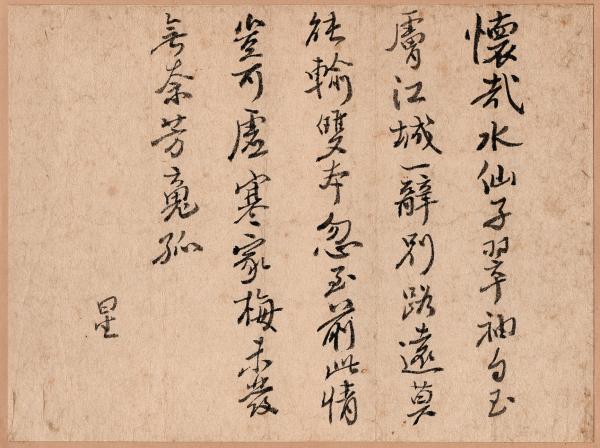 懷哉水仙子翠袖白玉
膚江城一辭別路遠莫
能輸雙本忽至前此情
豈可虛寒家梅未發
無奈芳魂孤
星